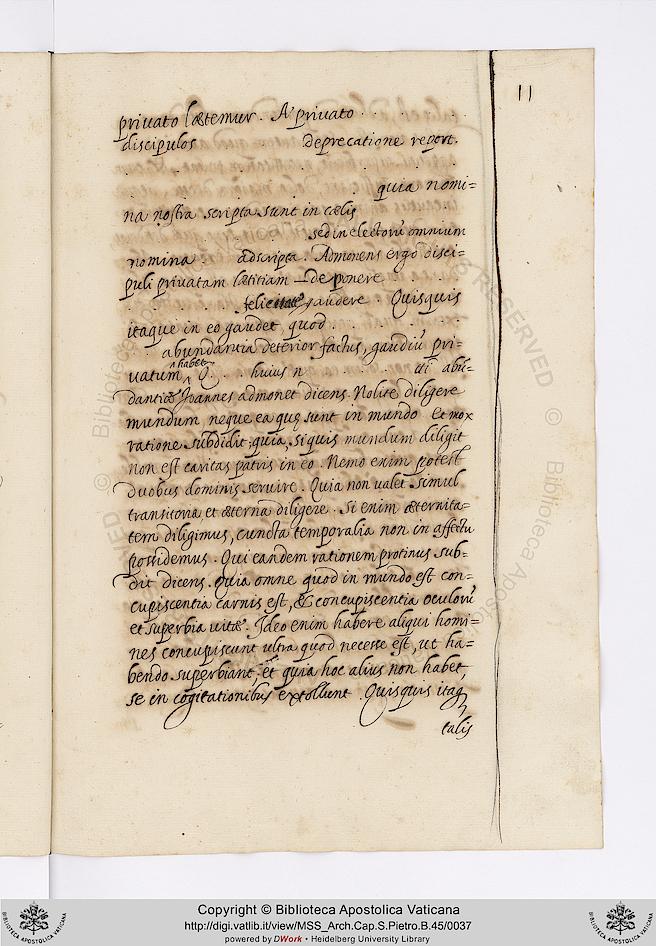 11
privato lætemur. A privato . . .
discipulos deprecatione report.
. . . quia nomi=
na nostra scripta sunt in cælis
sed in electorũ omnium
nomina . . adscripta. Admonens ergo disci=
puli privatam lætitiam deponere
. . . gaudere. Quisquis
itaque in eo gaudet, quod . . .
abundantia deterior factus, gaudiũ pri=
vatum habet
Q. huius n iti abũ=
dantiæ Joannes admonet dicens. Nolite diligere
mundum neque ea quę sunt in mundo et mox
ratione subdidit; quia, si quis mundum diligit
non est caritas patris in eo. Nemo enim potest
duobus dominis servire. Quia non valet simul
transitoria, et æterna diligere. Si enim æternita=
tem diligimus, cuncta temporalia non in affectu
possidemus. Qui eandem rationem protinus sub=
dit dicens. Quia omne quod in mundo est con=
cupiscentia carnis est, & concupiscentia oculorũ
et superbia vitæ. Ideo enim habere aliqui homi=
nes concupiscunt ultra quod necesse est, ut ha=
bendo superbiant, et quia hoc alius non habet,
se in cogitationibus extollunt. Quisquis itaq
talis
Copyright © Biblioteca Apostolica Vaticana
http://digi.vatlib.it/view/MSS_Arch.Cap.S.Pietro.B.45/0037
powered by DWork • Heidelberg University Library